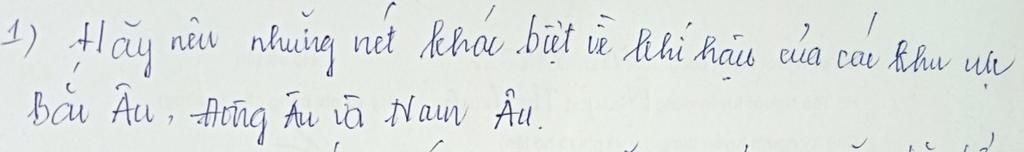 1) Hãy nêu những nét khác biệt về khí hậu của các khu vực
Bắc Âu, Đông Âu và Nam Âu.